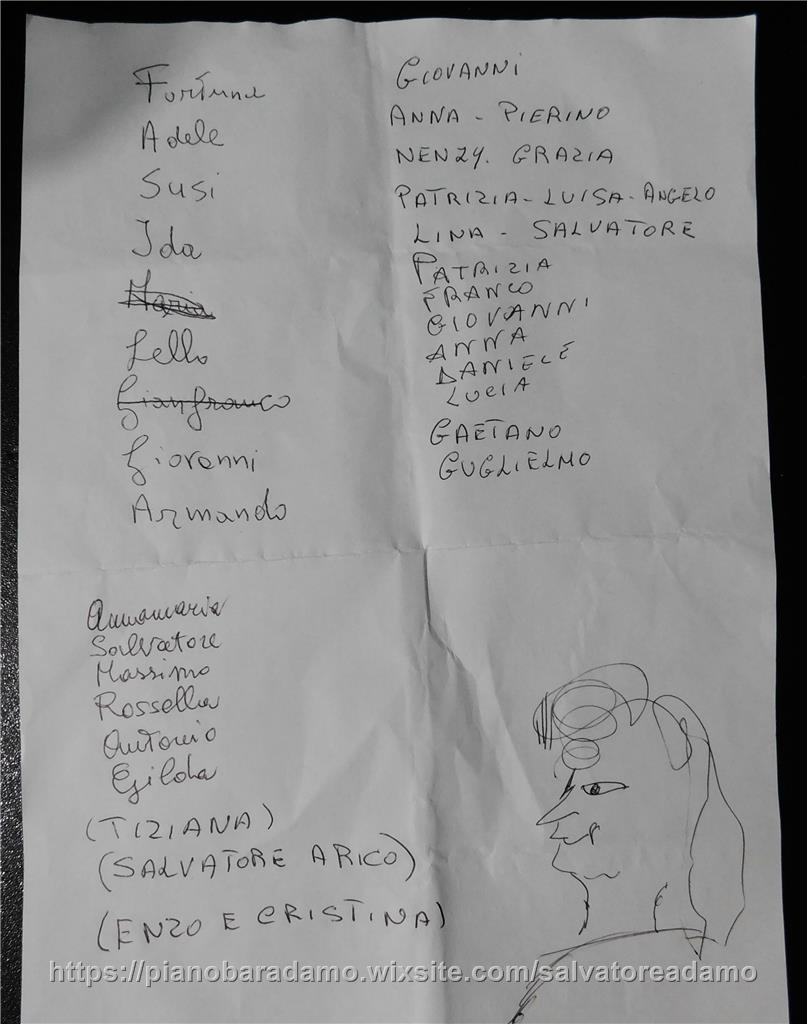 Fortuna
Adele
Susi
Ida
Maria
Lello
Gianfranco
Giovanni
Armando
GIOVANNI
ANNA - PIERINO
NENZY. GRAZIA
PATRIZIA - LUISA - ANGELO
LINA - SALVATORE
PATRIZIA
FRANCO
GIOVANNI
ANNA
DANIELE
LUCIA
GAETANO
GUGLIELMO
Annamaria
Salvatore
Massimo
Rossella
Antonio
Egilda
(TIZIANA)
(SALVATORE ARICO)
(ENZO E CRISTINA)
https://pianobaradamo.wixsite.com/salvatoreadamo